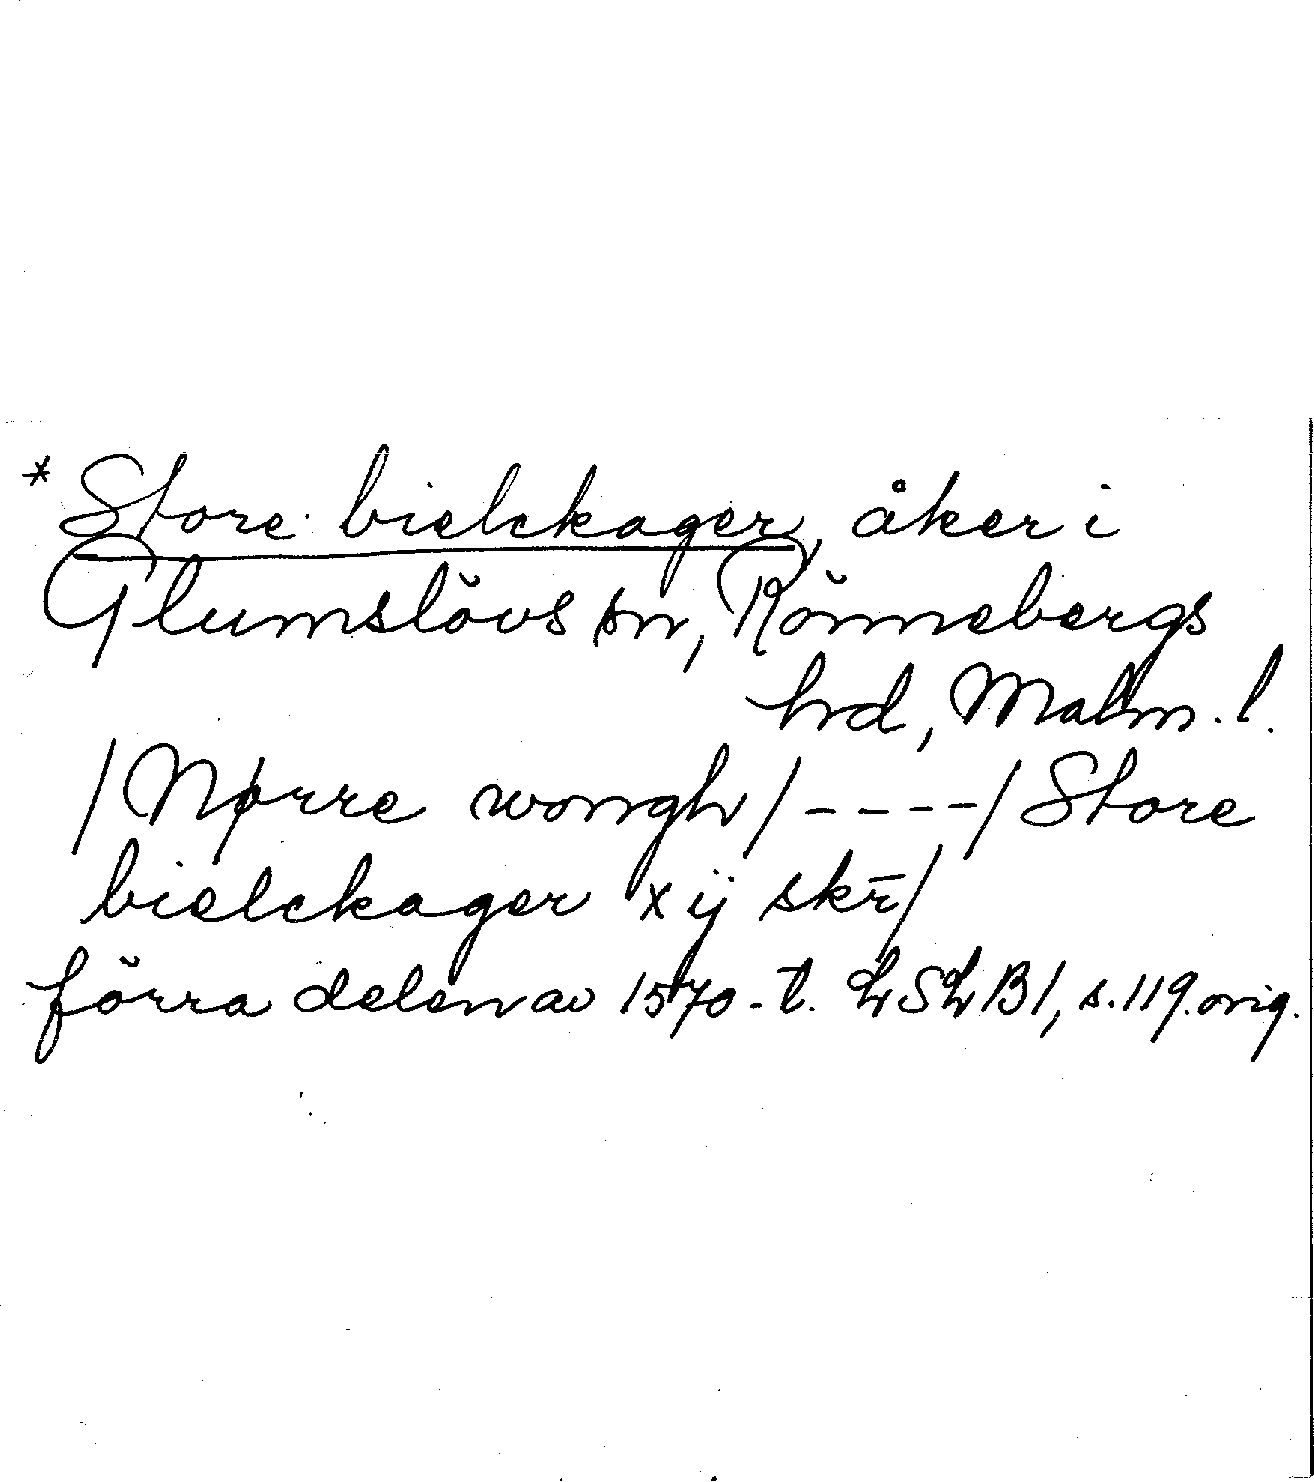 * Store bielckager, åker i
Glumslövs sn, Rönnebergs
hrd, Malm. l.
/Nørre wongh/----/Store
bielckager xij skr̄/
förra delen av 1570-t. LSLB1, s. 119. orig.